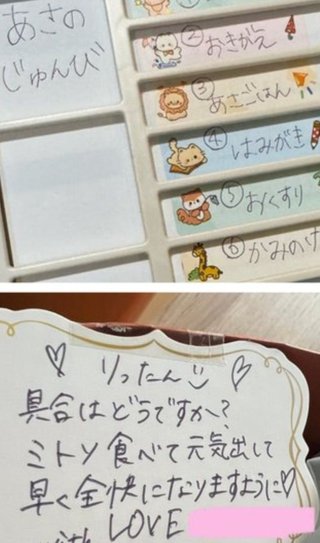 あさの
じゅんび
②おきがえ
③あさごはん
④はみがき
⑤おくすり
⑥かみのけ
りったん
具合はどうですか?
ミトン食べて元気出して
早く全快になりますように♡
LOVE